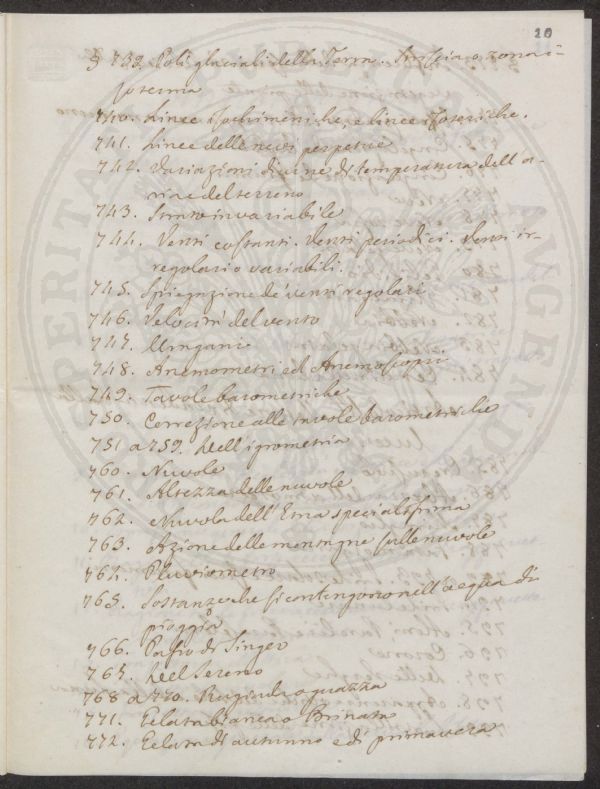 20
§ 739. Poli glaciali della Terra. Striscia o zona i-
soterma
740. Linee Isochimeniche, e linee Isoteriche.
741. Linee delle nevi perpetue
742. Variazioni diurne di temperatura dell'a-
ria e del terreno
743. Strato invariabile
744. Venti costanti. Venti periodici. Venti ir-
regolari o variabili.
745. Spiegazione de' venti regolari
746. Velocità del vento
747. Uragani
748. Anemometri ed Anemoscopii
749. Tavole barometriche
750. Correzione alle tavole barometriche
751 a 759. Dell'igrometria
760. Nuvole
761. Altezza delle nuvole
762. Nuvola dell'Etna specialissima
763. Azione delle montagne sulle nuvole
764. Pluviometro
765. Sostanze che si contengono nell'acqua di
pioggia
766. di Singer
767. Del Sereno
768 a 770. Rugiada o guazza
771. Gelata bianca o Brinata
772. Gelata di autunno e di primavera
SPERITATI PUBLICAE AVGENDAE